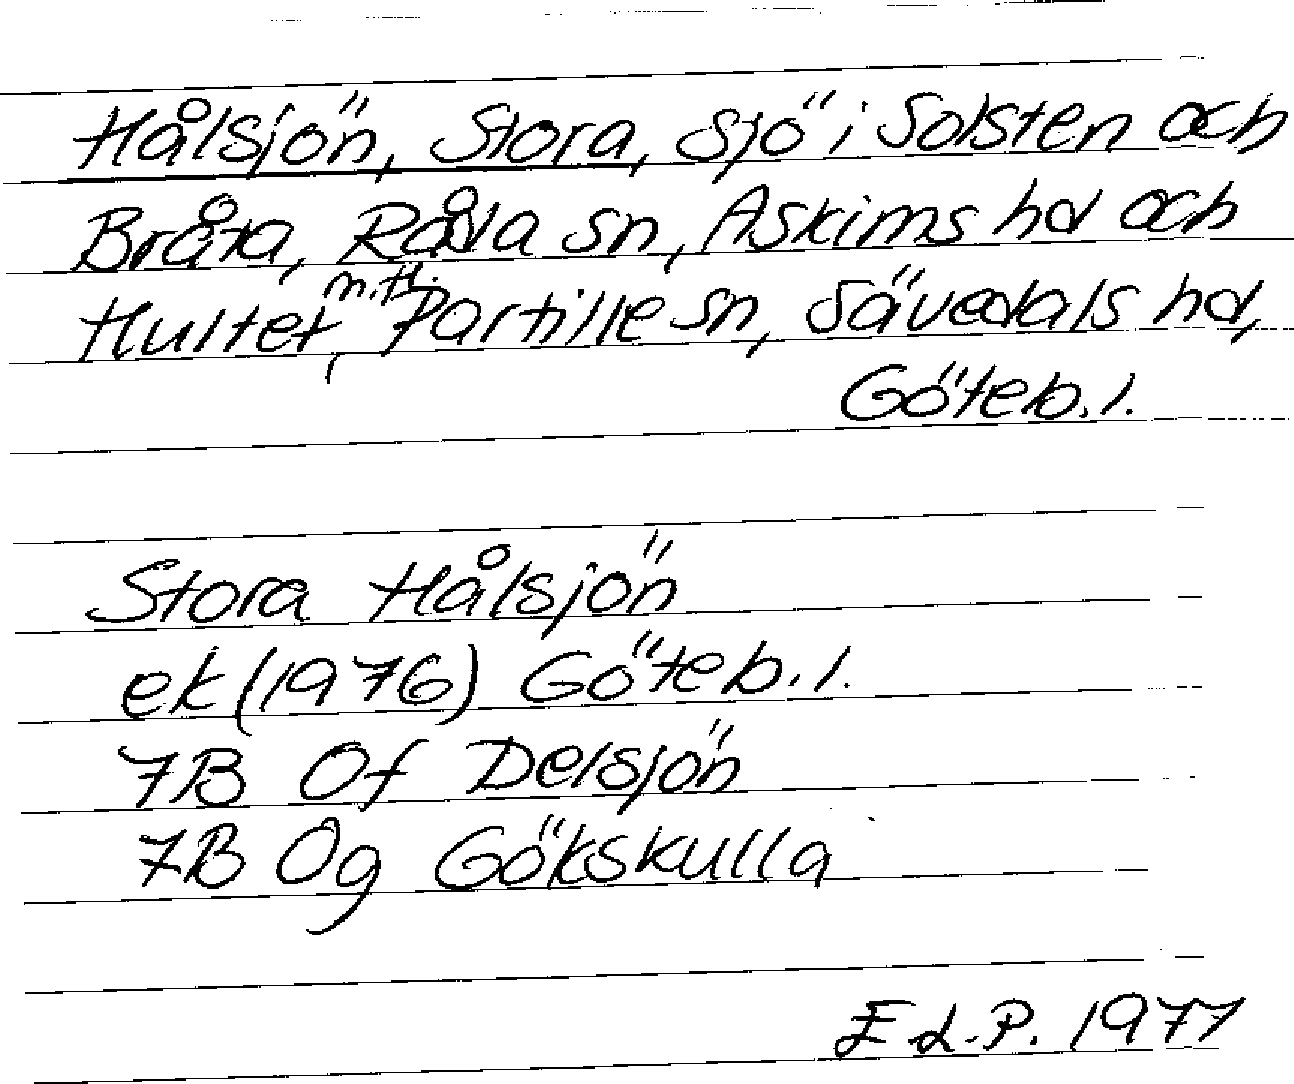 Hålsjön, Stora, sjö i Solsten och
Bråta, Råda sn, Askims hd och
Hultet m.fl., Partille sn, Sävedals hd,
Göteb. l.
Stora Hålsjön
ek (1976) Göteb. l.
7B 0f Delsjön
7B 0g Gökskulla
E L.P. 1977